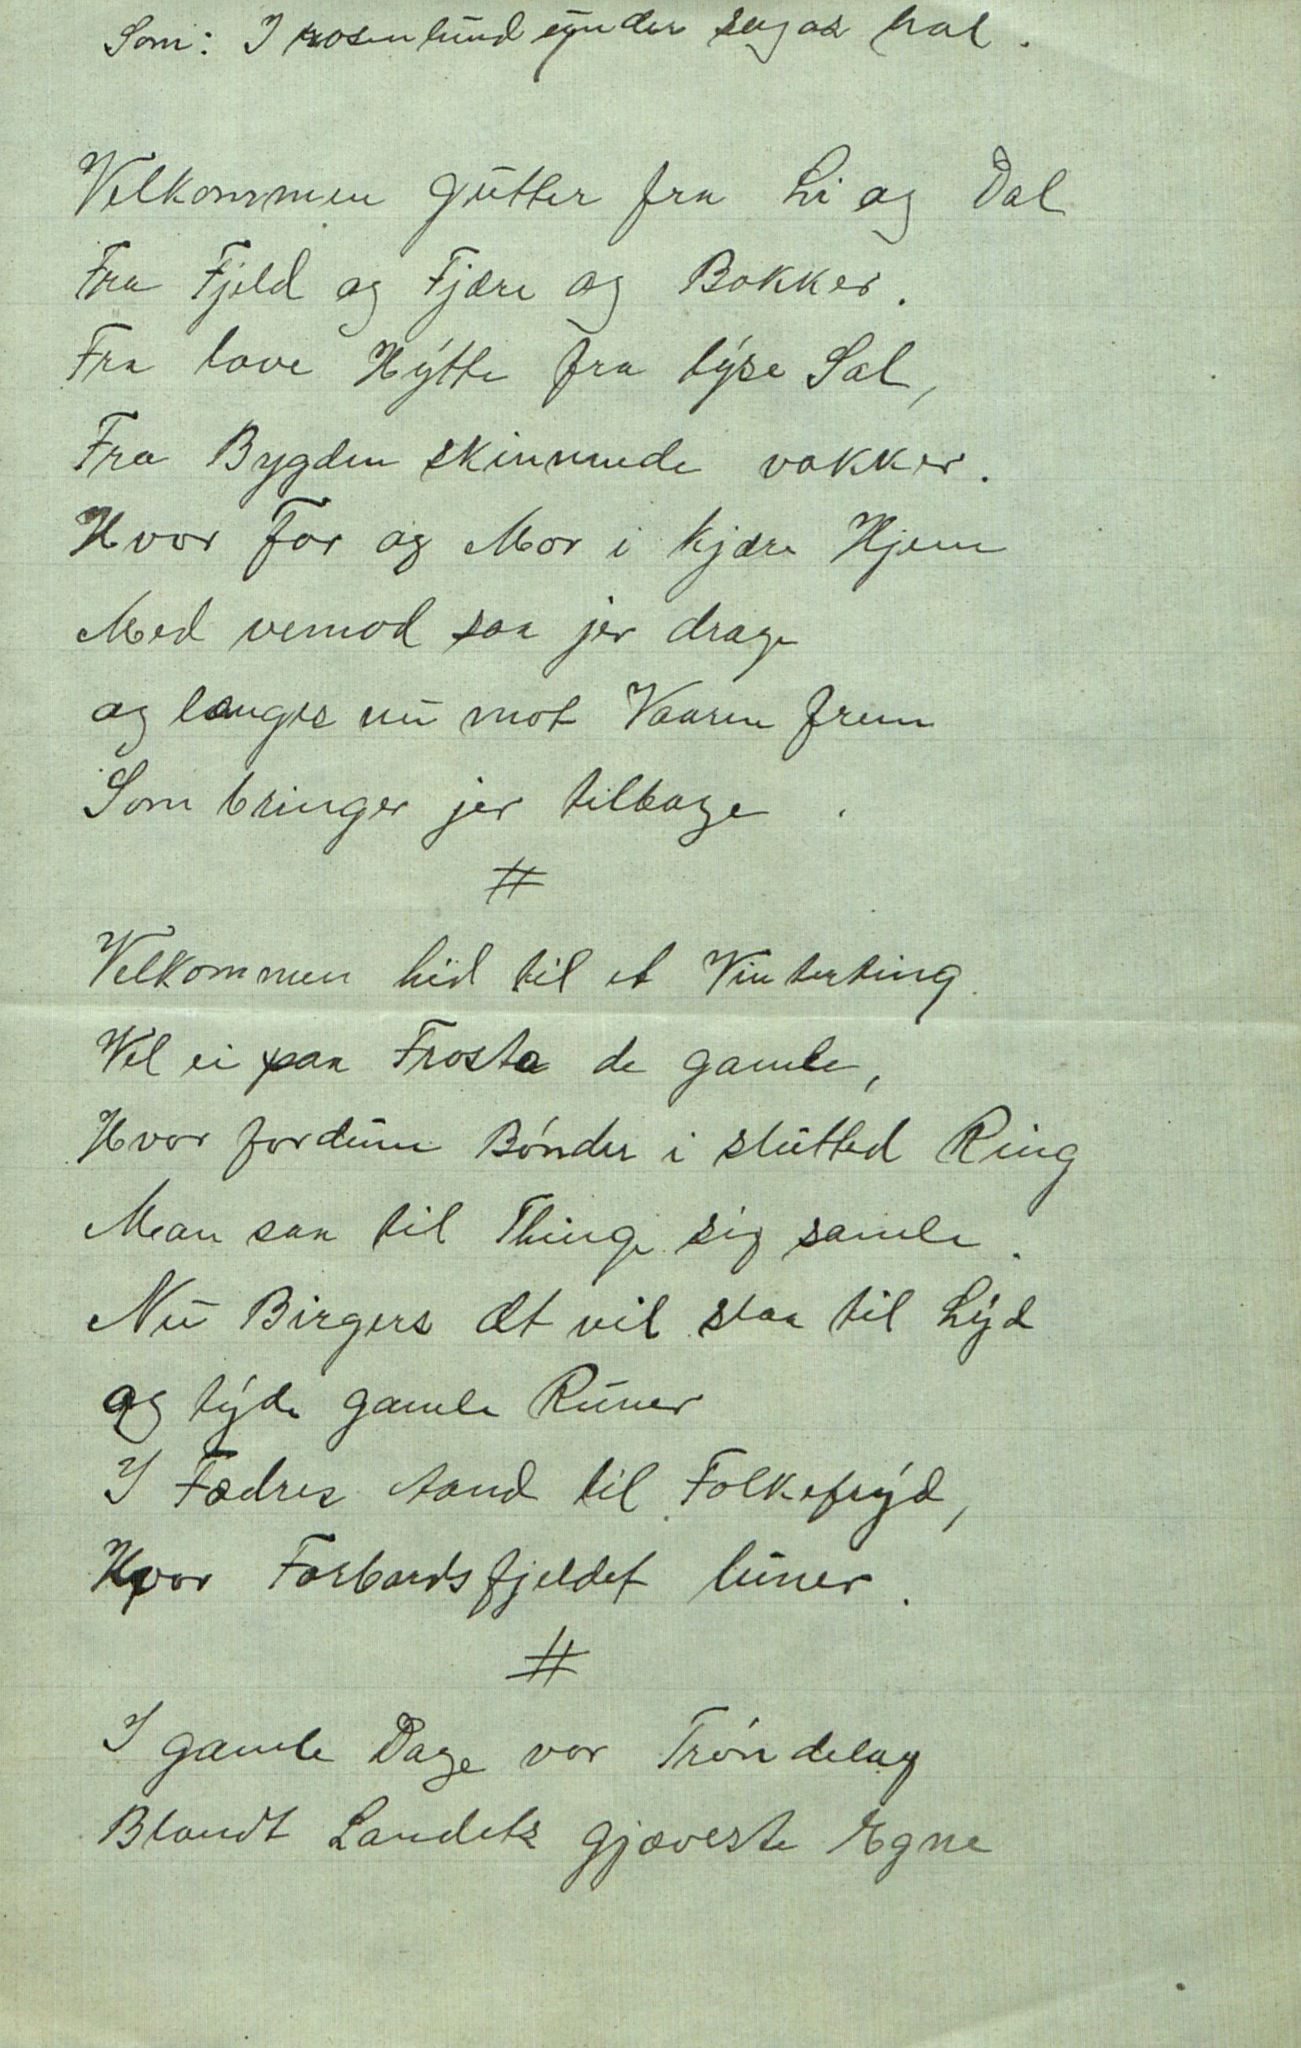 Som: I rosenlund under sagas hal.
Velkommen Gutter fra Li og Dal
Fra Fjeld og Fjære og Bakker.
Fra lave Hytte fra lyse Sal,
Fra Bygden skinnende vakker.
Hvor Far og Mor i kjære Hjem
Med vemod saa jer drage
og længes nu mot Vaaren frem
Som bringer jer tilbage.
#
Velkommen hid til et Vinterting
Vel ei paa Frosta de gamle,
Hvor fordum Bønder i slutted Ring
Man saa til Thinge sig samle.
Nu Birgers Æt vil slaa til Lyd
og tyde gamle Runer
I Fædres Aand til Folkefryd,
Hvor Forbordsfjeldet luner.
#
I gamle Dage var Trøndelag
Blandt Landets gjæveste Egne